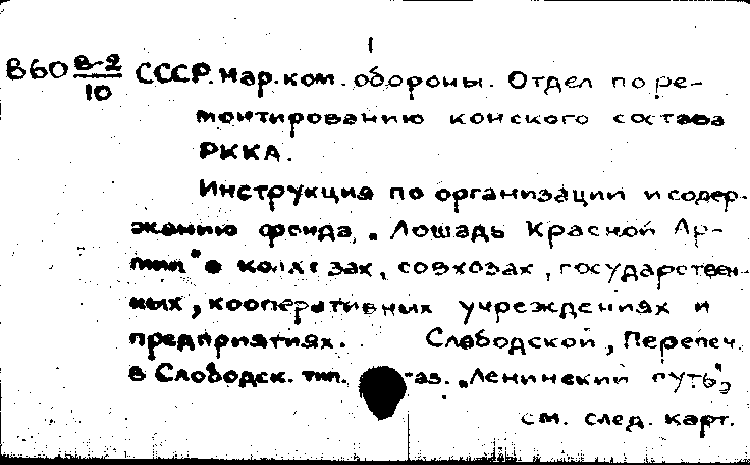 1
В60 В-2/10 СССР. Нар. ком. обороны. Отдел по ре-
монтированию конского состава
РККА.
Инструкция по организации и содер-
жанию фонда „Лошадь Красной Ар-
мии" в колхозах, совхозах, государствен-
ных, кооперативных учреждениях и
предприятиях. Слободской, Перепеч.
в Слободск. тип. газ. „Ленинский путь",
см. след. карт.